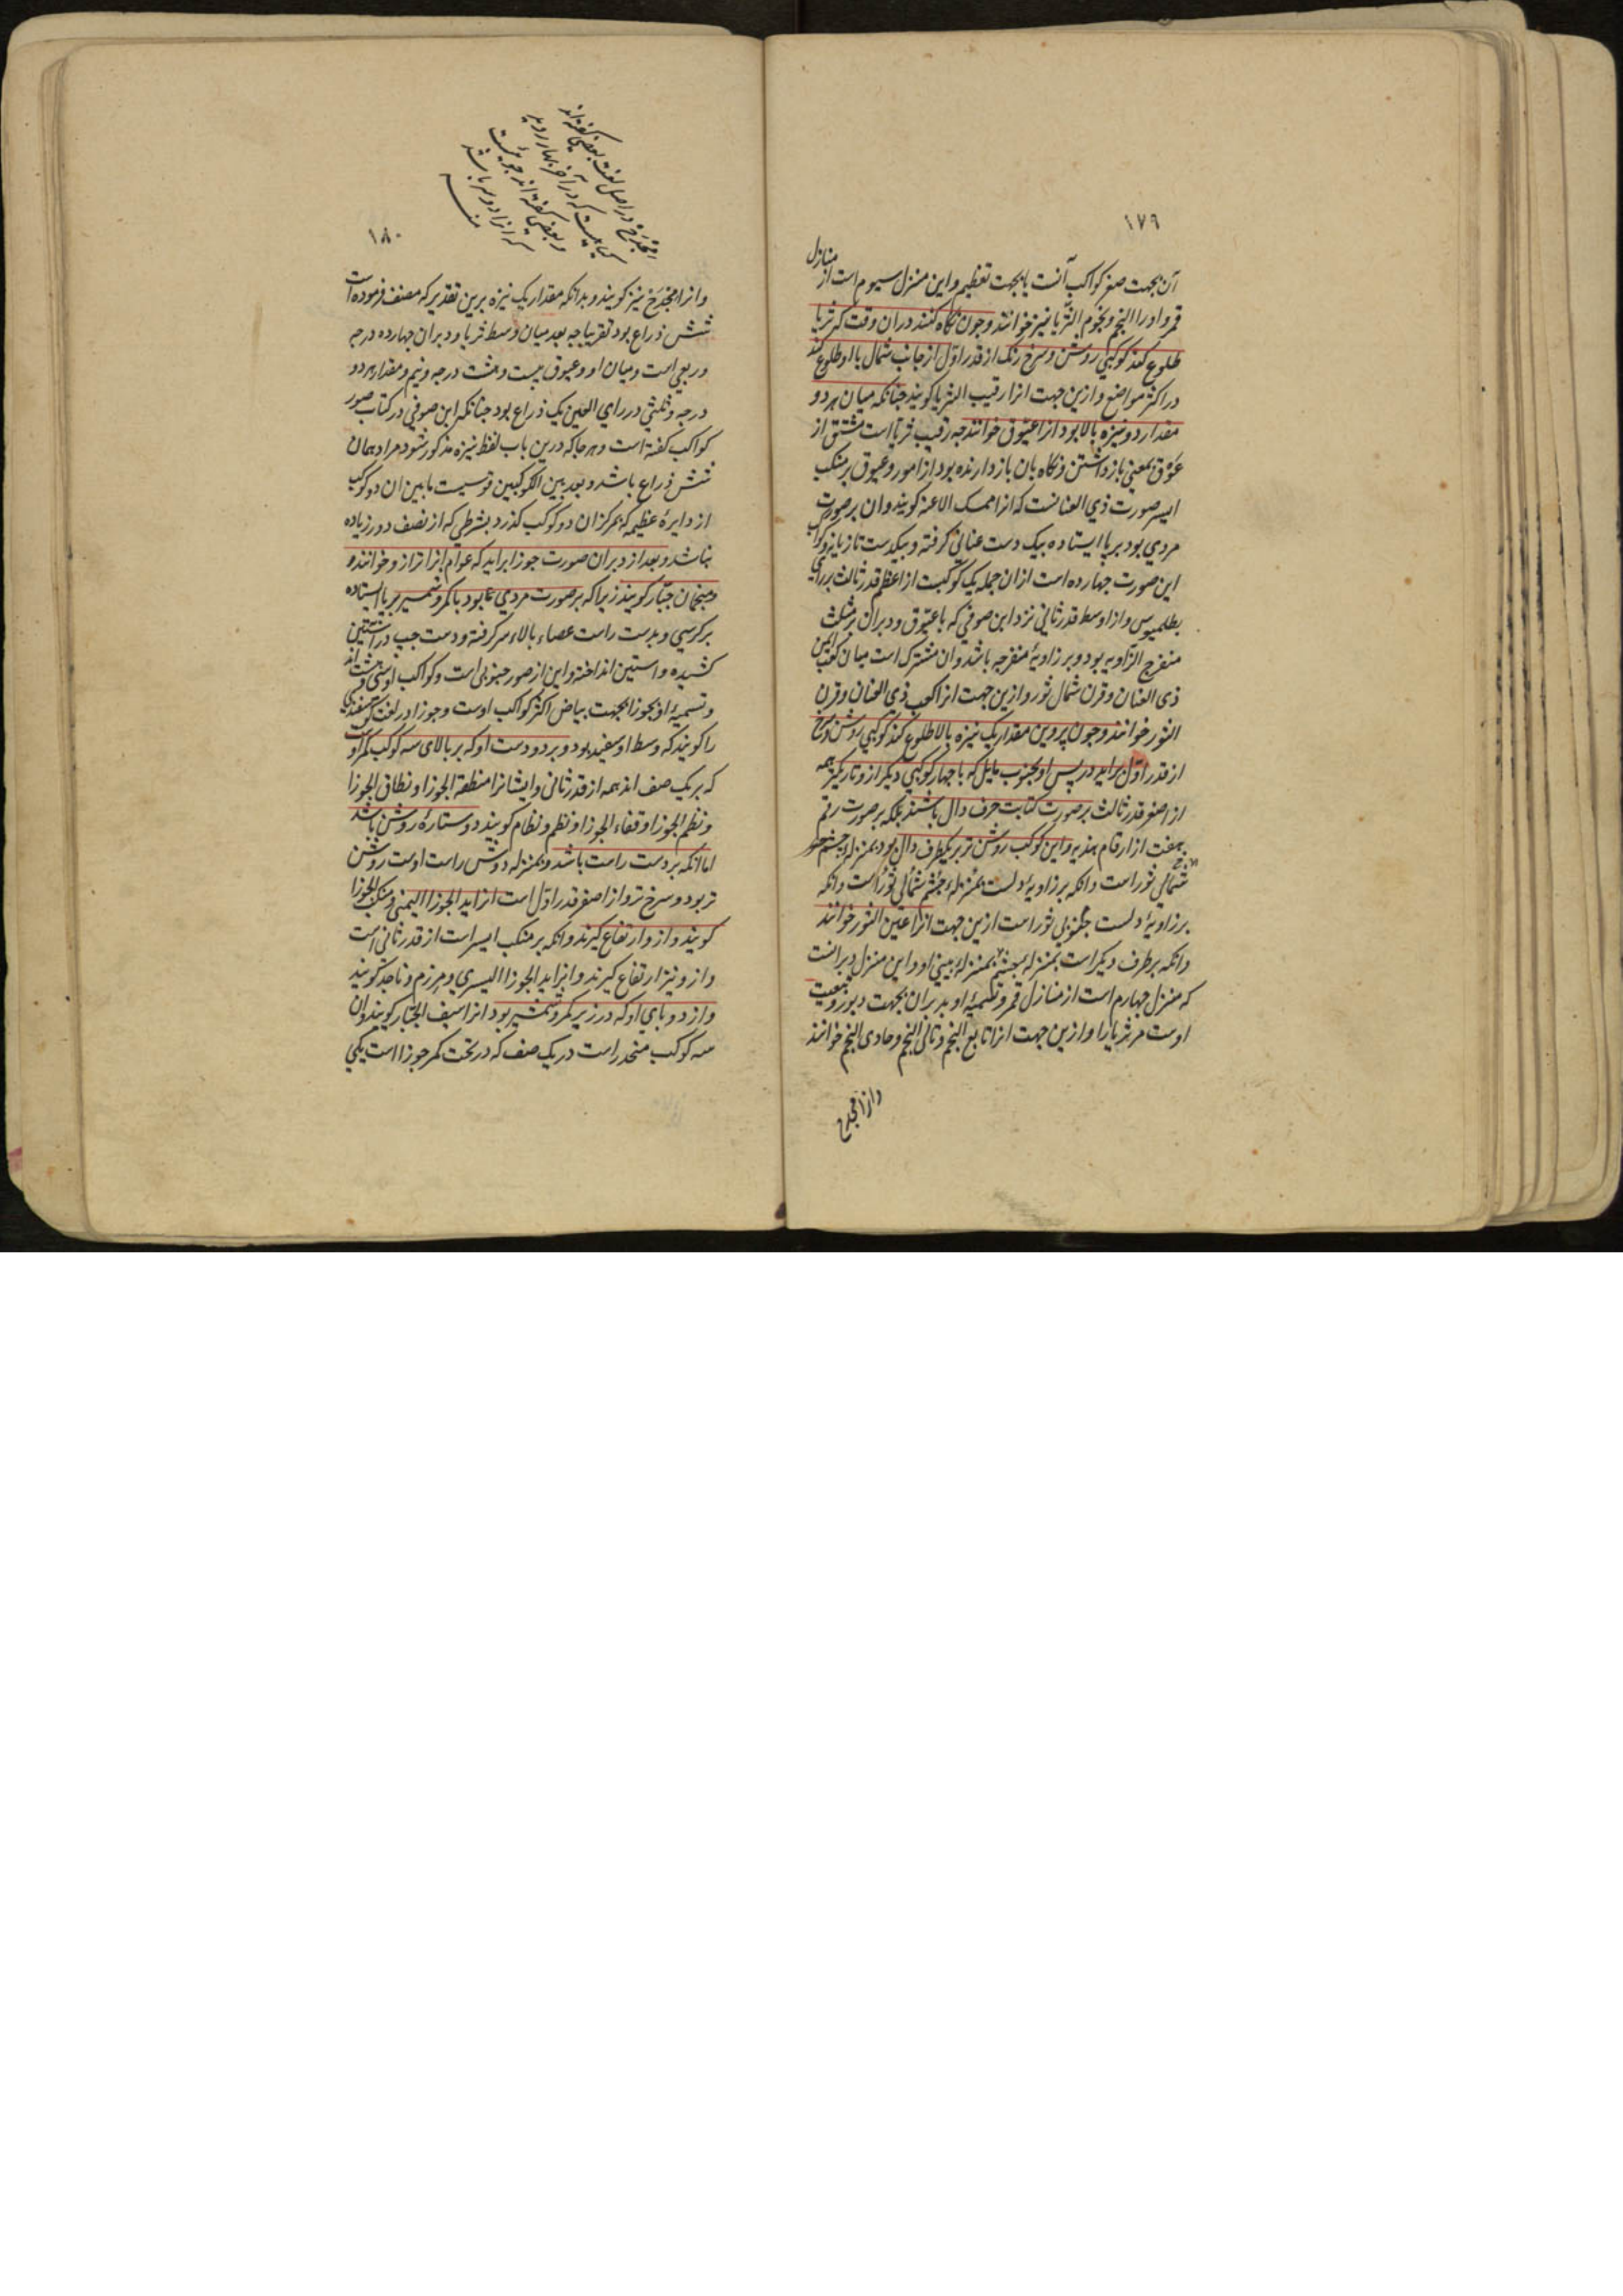 ١٧٩
آن بجهت صغر کواکب آنست یا بجهت تعظیم و این منزل سیوم است از منازل
قمر و او را النجم و نجوم الثریا نیز خوانند و چون نکاه کنند دران وقت که ثریا
طلوع کند کوکبی روشن و سرخ رنک از قدر اوّل از جانب شمال با او طلوع کند
در اکثر مواضع و ازین جهت انرا رقیب الثریا کویند چنانکه میان هر دو
مقدار دو نیزه بالا بود انرا عیّوق خوانند چه رقیب ثریا است مشتق از
عَوْق بمعنی باز داشتن و نکاه بان باز دارنده بود از امور و عیوق بر منکب
ایسر صورت ذی العنانست که انرا ممسک الاعنه کویند و ان بر صورت
مردی بود بر پا ایستاده بیک دست عنانی کرفته و بیکدست تازیانه و کواکب
این صورت چهارده است از ان جمله یک کوکبست از اعظم قدر ثالث برای
بطلمیوس و از اوسط قدر ثانی نزد ابن صوفی که با عیّوق و دبران بر مثلث
منفرج الزّاویه بود و بر زاویهٔ منفرجه باشد و ان مشترک است میان کعب ایمن
ذی العنان و قرن شمال ثور و ازین جهت انرا کعب ذی العنان و قرن
الثور خوانند و چون پروین مقدار یک نیزه بالا طلوع کند کوکبی روشن و سرخ
از قدر اوّل براید در پس او بجنوب مایل که با چهار کوکبی دیکر از و تاریکتر همه
از اصغر قدر ثالث بر صورت کتابت حرف دال باشند بلکه بر صورت رقم
هفت از ارقام هندیه و این کوکب روشن تر بر یکطرف دال بود بمنزلهٔ چشم
شمالی ثور است و انکه بر زاویهٔ دلست بمنزلهٔ چشم شمالی ثور است و انکه
بر زاویهٔ دلست جنوبی ثور است ازین جهت انرا عین الثور خوانند
و انکه بر طرف دیکر است بمنزله بمنزلهٔ بینی او و این منزل دبرانست
که منزل چهارم است از منازل قمر و تسمیهٔ او بدبران بجهت دبور و تبعیت
اوست مر ثریا را و ازین جهت انرا تابع النجم و تالی النجم و حادی النجم خوانند
و انرا مجدح
١٨٠
مجدح در اصل لغت بعضی کفته اند
کیاهیست که در آخر بهار روید
و بعضی کفته اند چوبیست
که انرا دو سر باشد
منه
و انرا مجدح نیز کویند و بدانکه مقدار یک نیزه برین تقدیر که مصنف فرموده است
شش ذراع بود تقریبا چه بعد میان وسط ثریا و دبران چهارده درجه
و ربعی است و میان او و عیوق بیست و هشت درجه و نیم و مقدار هر دو
درجه و ثلثی در رای العین یک ذراع بود چنانکه ابن صوفی در کتاب صور
کواکب کفته است و هر جا که درین باب لفظ نیزه مذکور شود مراد همان
شش ذراع باشد و بعد بین الکوکبین قوسیست مابین ان دو کوکب
از دایرهٔ عظیمه که بمرکز ان دو کوکب کذرد بشرطی که از نصف دور زیاده
نباشد و بعد از دبران صورت جوزا براید که عوام انرا ترازو خوانند و
منجمان جبّار کویند زیرا که بر صورت مردی بود با کمر و شمشیر بر پا ایستاده
بر کرسی و بدست راست عصا بالاء سر کرفته و دست چپ در آستین
کشیده و استین انداخته و این از صور جنوبی است و کواکب او سی و هشت اند
و تسمیهٔ او بجوزا بجهت بیاض اکثر کواکب اوست و جوزا در لغت کوسفندی
را کویند که وسط او سفید بود و بر دو دست او که بر بالای سه کوکب کمر اوست
که بر یک صف اند همه از قدر ثانی و ایشانرا منطقة الجوزا و نطاق الجوزا
و نظم الجوزا و قفاء الجوزا و نظم و نظام کویند دو ستارهٔ روشن باشد
اما انکه بر دست راست باشد و بمنزله دوش راست اوست روشن
تر بود و سرخ تر و از اصغر قدر اوّل است انرا ید الجوزا الیمنی و منکب الجوزا
کویند و از و ارتفاع کیرند و انکه بر منکب ایسر است از قدر ثانی است
و از و نیز ارتفاع کیرند و انرا ید الجوزا الیسری و مرزم و ناجد کویند
و از دو پای او که در زیر کمر و شمشیر بود انرا سیف الجبّار کویند و ان
سه کوکب منحدر است در یک صف که در تحت کمر جوزا است یکی